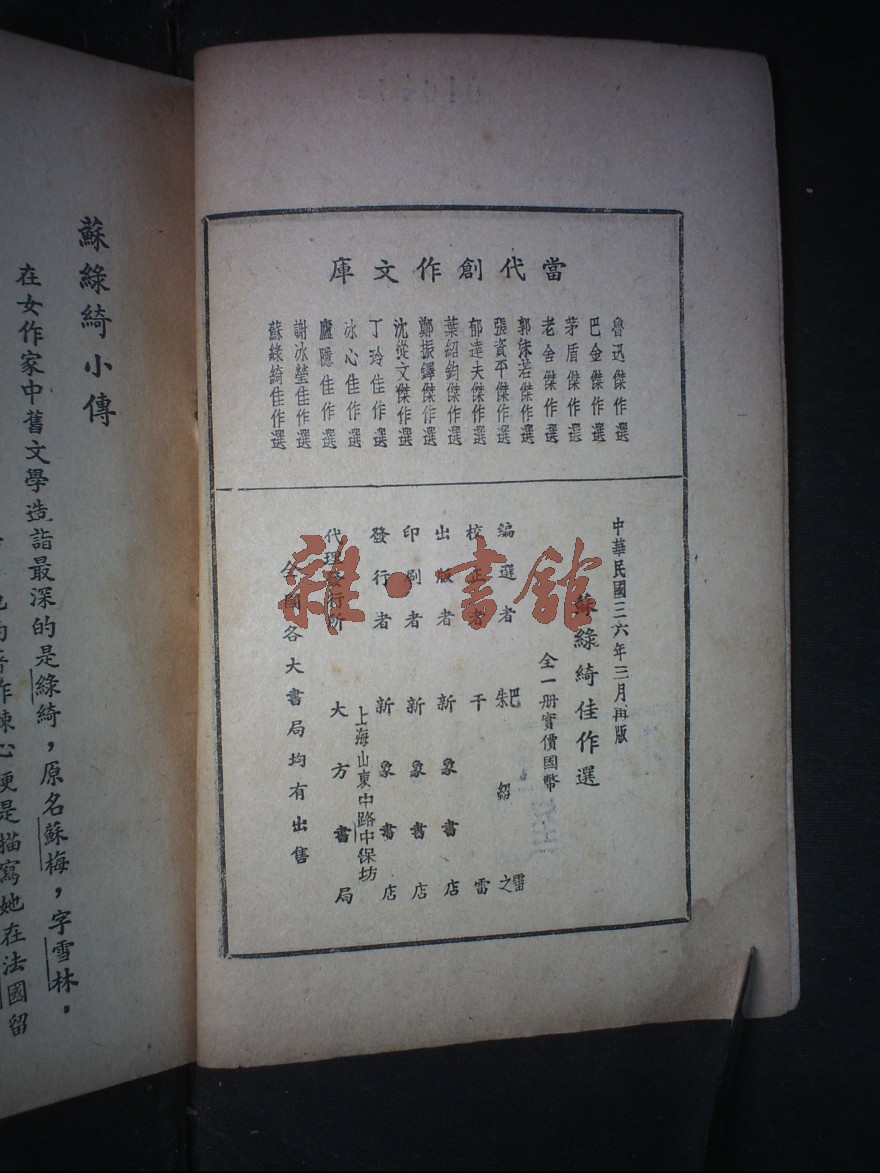 當代創作文庫
魯迅傑作選
巴金傑作選
茅盾傑作選
老舍傑作選
郭沫若傑作選
張資平傑作選
郁達夫傑作選
葉紹鈞傑作選
鄭振鐸傑作選
沈從文傑作選
丁玲佳作選
冰心佳作選
廬隱佳作選
謝冰瑩佳作選
蘇綠綺佳作選
中華民國三六年三月再版
蘇綠綺佳作選
全一册實價國幣
編選者 巴雷 朱紹之
校正者 干雷
出版者 新象書店
印刷者 新象書店
發行者 新象書店
上海山東中路中保坊
代理發行所 大方書局
全國各大書局均有出售
雜·書館
蘇綠綺小傳
在女作家中舊文學造詣最深的是綠綺，原名蘇梅，字雪林。
著作棘心便是描寫她在法國留